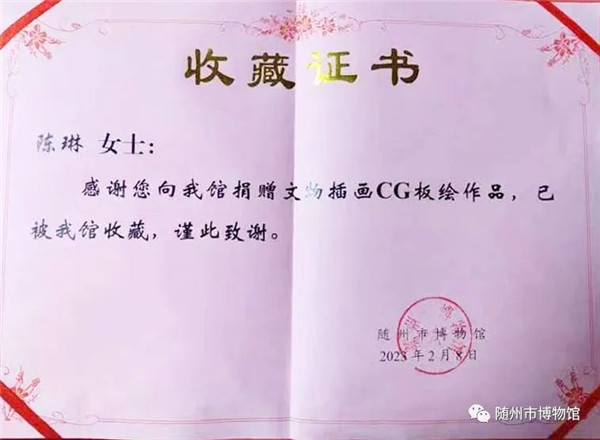 收藏证书
陈琳 女士：
感谢您向我馆捐赠文物插画CG板绘作品，已
被我馆收藏，谨此致谢。
随州市博物馆
2023年2月8日
随州市博物馆